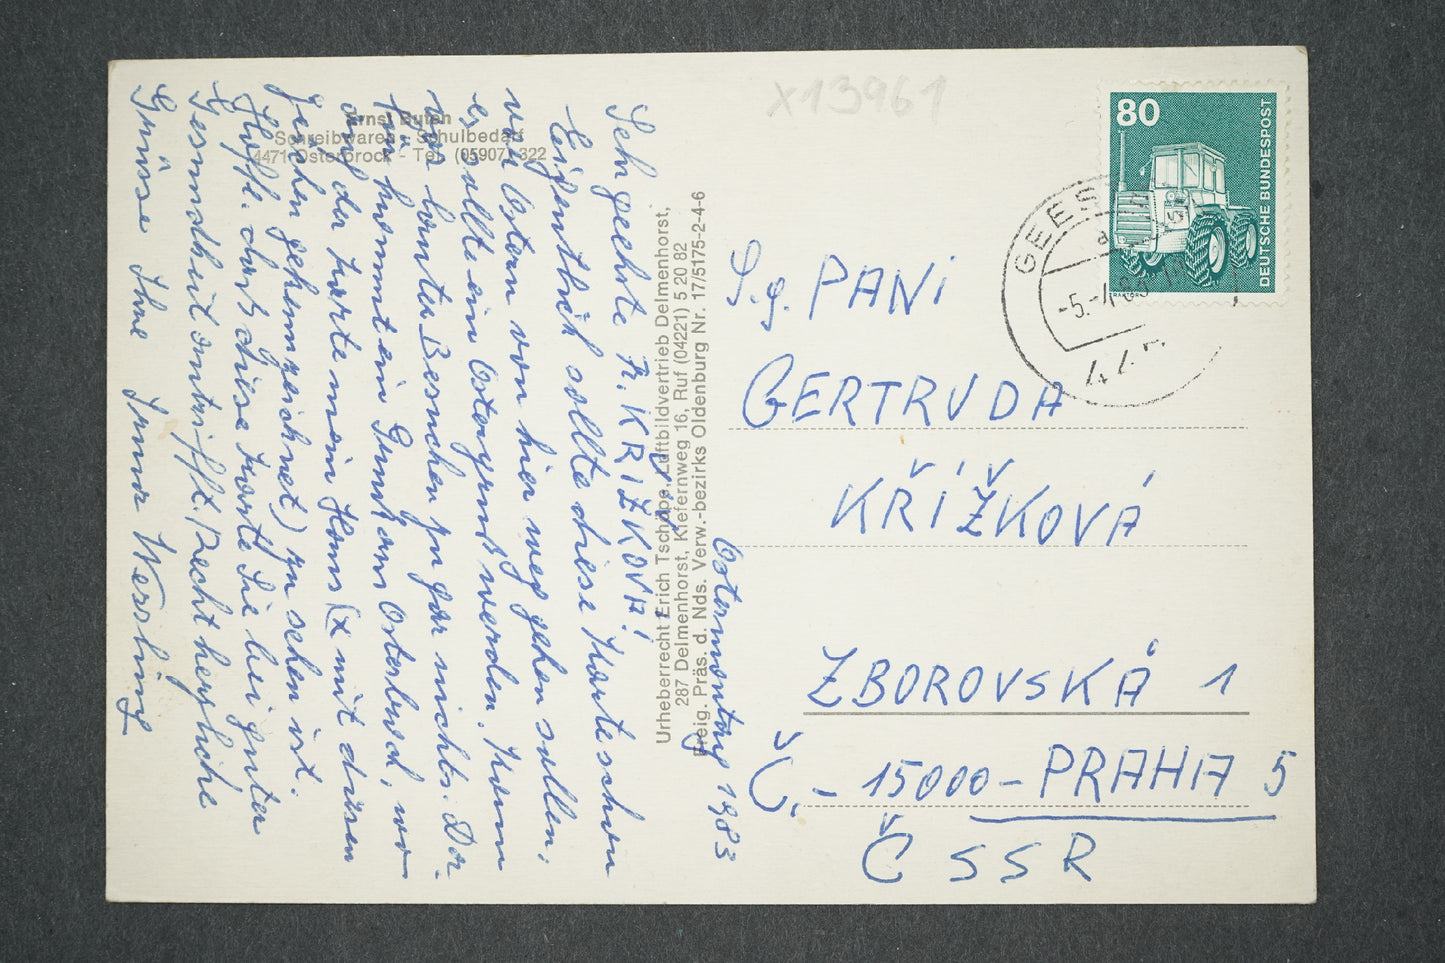 X13961
80
DEUTSCHE BUNDESPOST
TRAKTOR
GEES
-5.-4.83
44
Ernst Buten
Schreibwaren - Schulbedarf
4471 Osterbrock - Tel. (05907) 322
Urheberrecht Erich Tschöpe, Luftbildvertrieb Delmenhorst,
287 Delmenhorst, Kiefernweg 16, Ruf (04221) 5 20 82
Freig. Präs. d. Nds. Verw.-bezirks Oldenburg Nr. 17/5175-2-4-6
Ostermontag 1983
Sehr geehrte Fr. KŘIŽKOVÁ!
Eigentlich sollte diese Karte schon
vor Ostern von hier weg gehen sollen,
es sollte ein Ostergruß werden. Kam
vor lauter Besuchen zu gar nichts. Dar-
für kommt ein Gruß aus Osterbrock, wo
auf der Karte mein Haus (x mit diesen
Zeichen gekennzeichnet) zu sehen ist.
Hoffe. daß diese Karte Sie bei guter
Gesundheit antrifft. Recht herzliche
Grüsse Ihre Irma Wessling
S.g. PANI
GERTRUDA
KŘÍŽKOVÁ
ZBOROVSKÁ 1
Č.- 15000 - PRAHA 5
ČSSR